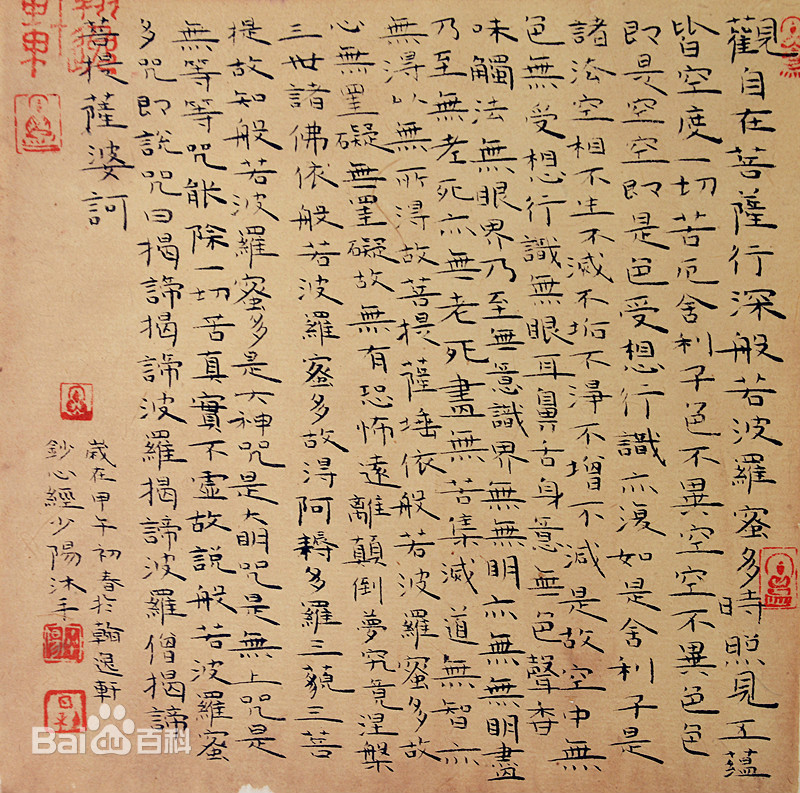 觀自在菩薩行深般若波羅蜜多時照見五蘊
皆空度一切苦厄舍利子色不異空空不異色色
即是空空即是色受想行識亦復如是舍利子是
諸法空相不生不滅不垢不淨不增不減是故空中無
色無受想行識無眼耳鼻舌身意無色聲香
味觸法無眼界乃至無意識界無無明亦無無明盡
乃至無老死亦無老死盡無苦集滅道無智亦
無得以無所得故菩提薩埵依般若波羅蜜多故
心無罣礙無罣礙故無有恐怖遠離顛倒夢究竟涅槃
三世諸佛依般若波羅蜜多故得阿耨多羅三藐三菩
提故知般若波羅蜜多是大神咒是大明咒是無上咒是
無等等咒能除一切苦真實不虛故說般若波羅蜜
多咒即說咒曰揭諦揭諦波羅揭諦波羅僧揭諦
菩提薩婆訶
歲在甲午初春於翰逸軒
鈔心經少陽沐手
Bai du 百科